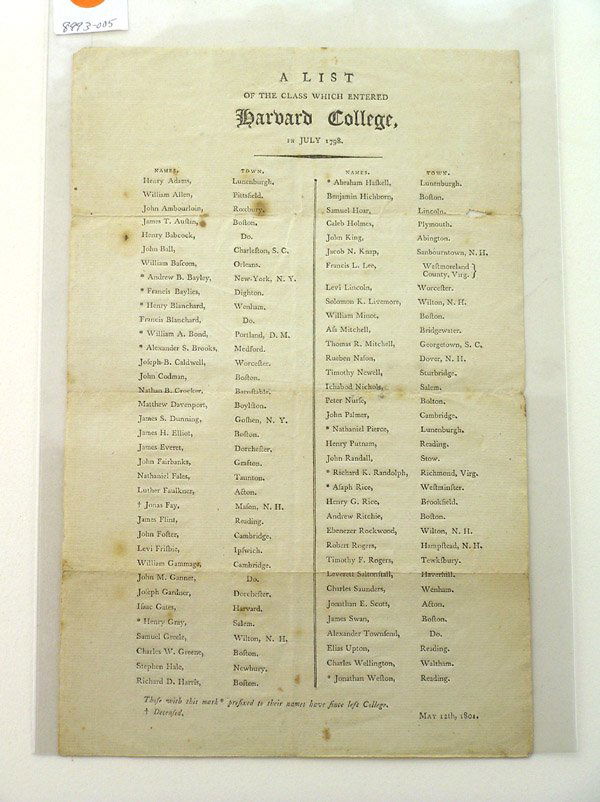 8993-005
A LIST
OF THE CLASS WHICH ENTERED
Harvard College,
IN JULY 1798.
NAMES. TOWN.
Henry Adams, Lunenburgh.
William Allen, Pittsfield.
John Ambourloin, Roxbury.
James T. Auſtin, Boſton.
Henry Babcock, Do.
John Ball, Charleſton, S. C.
William Baſcom, Orleans.
* Andrew B. Bayley, New-York, N. Y.
* Francis Baylies, Dighton.
* Henry Blanchard, Wenham.
Francis Blanchard, Do.
* William A. Bond, Portland, D. M.
* Alexander S. Brooks, Medford.
Joſeph B. Caldwell, Worceſter.
John Codman, Boſton.
Nathan B. Crocker, Barnſtable.
Matthew Davenport, Boylſton.
James S. Dunning, Goſhen, N. Y.
James H. Elliot, Boſton.
James Everet, Dorcheſter.
John Fairbanks, Grafton.
Nathaniel Fales, Taunton.
Luther Faulkner, Acton.
† Jonas Fay, Maſon, N. H.
James Flint, Reading.
John Foſter, Cambridge.
Levi Friſbie, Ipſwich.
William Gammage, Cambridge.
John M. Ganner, Do.
Joſeph Gardner, Dorcheſter.
Iſaac Gates, Harvard.
* Henry Gray, Salem.
Samuel Greele, Wilton, N. H.
Charles W. Greene, Boſton.
Stephen Hale, Newbury.
Richard D. Harris, Boſton.
NAMES. TOWN.
* Abraham Haſkell, Lunenburgh.
Benjamin Hichborn, Boſton.
Samuel Hoar, Lincoln.
Caleb Holmes, Plymouth.
John King, Abington.
Jacob N. Knap, Sanbourntown, N. H.
Francis L. Lee, Weſtmoreland
County, Virg. }
Levi Lincoln, Worceſter.
Solomon K. Livermore, Wilton, N. H.
William Minot, Boſton.
Aſa Mitchell, Bridgewater.
Thomas R. Mitchell, Georgetown, S. C.
Rueben Naſon, Dover, N. H.
Timothy Newell, Sturbridge.
Ichabod Nichols, Salem.
Peter Nurſe, Bolton.
John Palmer, Cambridge.
* Nathaniel Pierce, Lunenburgh.
Henry Putnam, Reading.
John Randall, Stow.
* Richard K. Randolph, Richmond, Virg.
* Aſaph Rice, Weſtminſter.
Henry G. Rice, Brookfield.
Andrew Ritchie, Boſton.
Ebenezer Rockwood, Wilton, N. H.
Robert Rogers, Hampſtead, N. H.
Timothy F. Rogers, Tewkſbury.
Leverett Saltonſtall, Haverhill.
Charles Saunders, Wenham.
Jonathan E. Scott, Acton.
James Swan, Boſton.
Alexander Townſend, Do.
Elias Upton, Reading.
Charles Wellington, Waltham.
* Jonathan Weſton, Reading.
Thoſe with this mark * prefixed to their names have ſince left College.
† Deceaſed.
MAY 12th, 1801.